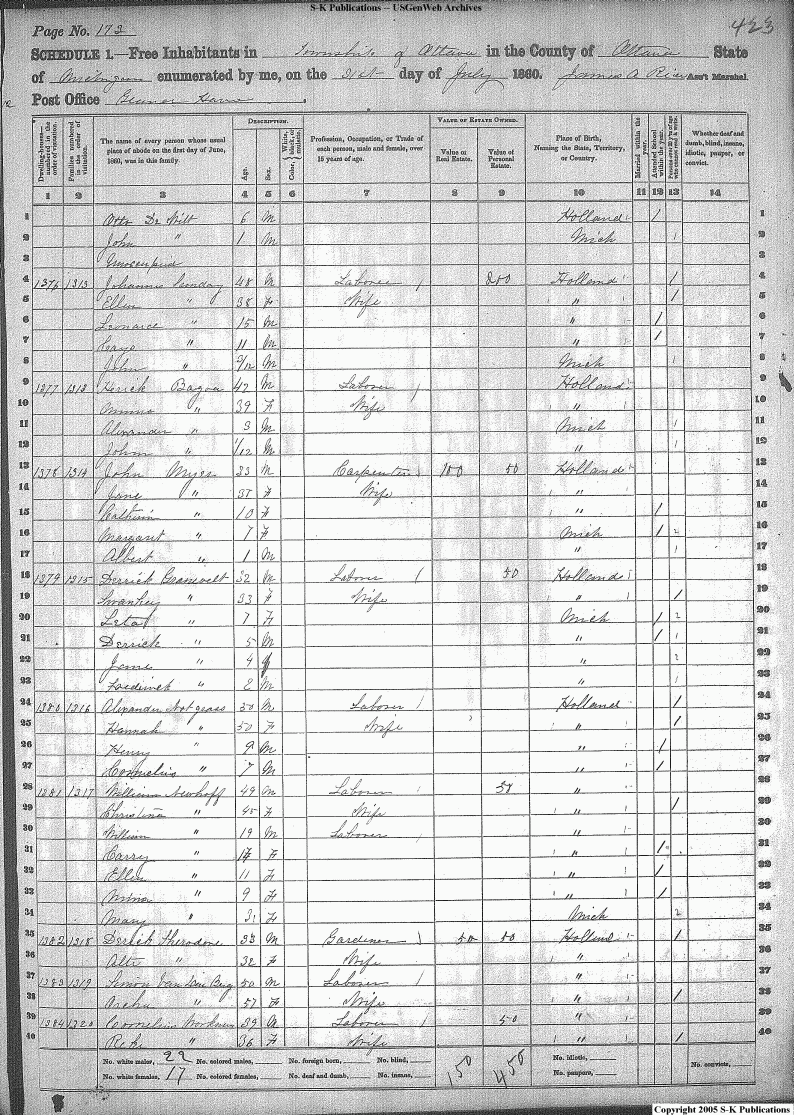 S-K Publications -- USGenWeb Archives
Page No. 172
423
SCHEDULE 1.—Free Inhabitants in Township of Ottawa in the County of Ottawa State
of Michigan enumerated by me, on the 31st day of July 1860. James A Rice Ass't Marshal.
Post Office Haven
Dwelling-houses— numbered in the order of visitation.
Families numbered in the order of visitation.
The name of every person whose usual place of abode on the first day of June, 1860, was in this family.
DESCRIPTION.
Age.
Sex.
Color, White, black, or mulatto.
Profession, Occupation, or Trade of each person, male and female, over 15 years of age.
VALUE OF ESTATE OWNED.
Value of Real Estate.
Value of Personal Estate.
Place of Birth, Naming the State, Territory, or Country.
Married within the year.
Attended School within the year.
Persons over 20 y'rs of age who cannot read & write.
Whether deaf and dumb, blind, insane, idiotic, pauper, or convict.
1 2 3 4 5 6 7 8 9 10 11 12 13 14
1 Otto De Witt 6 M Holland / 1
2 John " 1 M Mich 2
3 Unoccupied 3
4 1376 1313 Johannis 48 M Laborer 200 Holland / 4
5 Ellen " 38 F Wife " / 5
6 " 15 M " / 6
7 " 11 M " / 7
8 John " /12 M Mich 8
9 1377 1313 42 M Laborer Holland 9
10 " 39 F Wife " 10
11 Alexander " 3 M Mich 11
12 John " 1/12 M " 12
13 1378 1314 John Myer 33 M Carpenter 100 50 Holland 13
14 Jane " 37 F Wife " 14
15 " 10 F " / 15
16 Margaret " 7 F Mich / 2 16
17 Albert " 1 M " 17
18 1379 1315 Derrick 32 M Laborer 50 Holland 18
19 " 33 F Wife " / 19
20 " 7 F Mich / 2 20
21 Derrick " 5 M " / 21
22 Jane " 4 f " 2 22
23 " 2 M " 23
24 1380 1316 Alexander Notgrass 50 M Laborer Holland / 24
25 Hannah " 50 F Wife " / 25
26 Henry " 9 M " / 26
27 Cornelius " 7 M " / 27
28 1381 1317 William Newhoff 49 M Laborer 50 " 28
29 Christina " 45 F Wife " / 29
30 William " 19 M Laborer " 30
31 Carry " 14 F " / 31
32 Ellen " 11 F " / 32
33 " 9 F " / 33
34 Mary " 3 F Mich 2 34
35 1382 1318 Derick 33 M Gardener 50 50 Holland / 35
36 " 32 F Wife " 36
37 1383 1319 Simon Van 50 M Laborer " 37
38 " 57 F Wife " / 38
39 1384 1320 Cornelius 39 M Laborer 50 " 39
40 " 36 F Wife " / 40
No. white males, 22 No. colored males, No. foreign born, No. blind, 150 450 No. idiotic, No. convicts,
No. white females, 17 No. colored females, No. deaf and dumb, No. insane, No. paupers,
Copyright 2005 S-K Publications